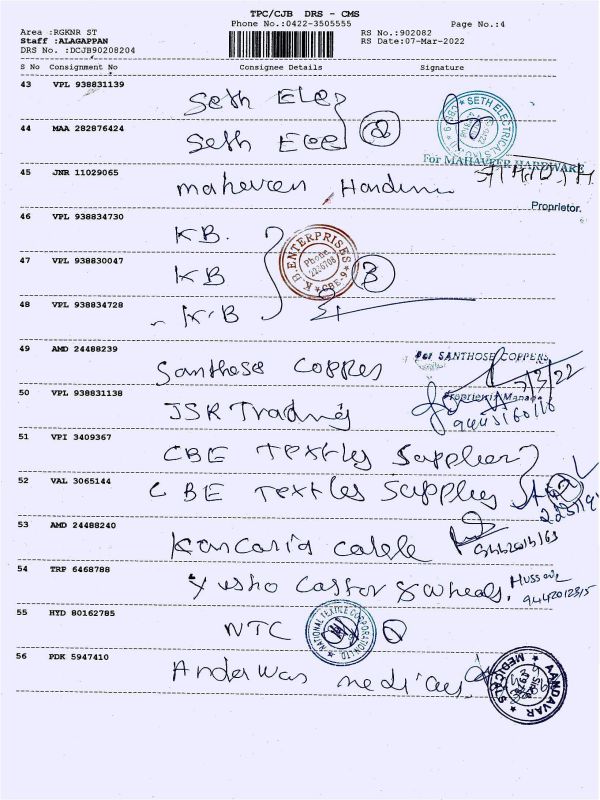 TPC/CJB DRS - CMS
Phone No.:0422-3505555
Page No.:4
Area :RGKNR ST
Staff :ALAGAPPAN
DRS No. :DCJB90208204
RS No.:902082
RS Date:07-Mar-2022
S No Consignment No Consignee Details Signature
43 VPL 938831139 Seth Ele
44 MAA 282876424 Seth Ele 2
SETH ELECTRICALS
For MAHAVEER HARDWARE
45 JNR 11029065
Proprietor.
46 VPL 938834730 KB.
47 VPL 938830047 KB 3
K.B. ENTERPRISES
Phone:
CBE-9
48 VPL 938834728 K.B
49 AMD 24488239 Santhose Coppes
For SANTHOSE COPPERS
7/3/22
50 VPL 938831138 JSR Trading
51 VPI 3409367 CBE Textles Supplier
52 VAL 3065144 CBE Textles Supplies
53 AMD 24488240
54 TRP 6468788 Yesho Castor & wheals.
Hussain
9442012315
55 HYD 80162785 NTC
NATIONAL TEXTILE CORPORATION LTD.
56 PDK 5947410 Andawar medicals
AANDAVAR MEDICALS